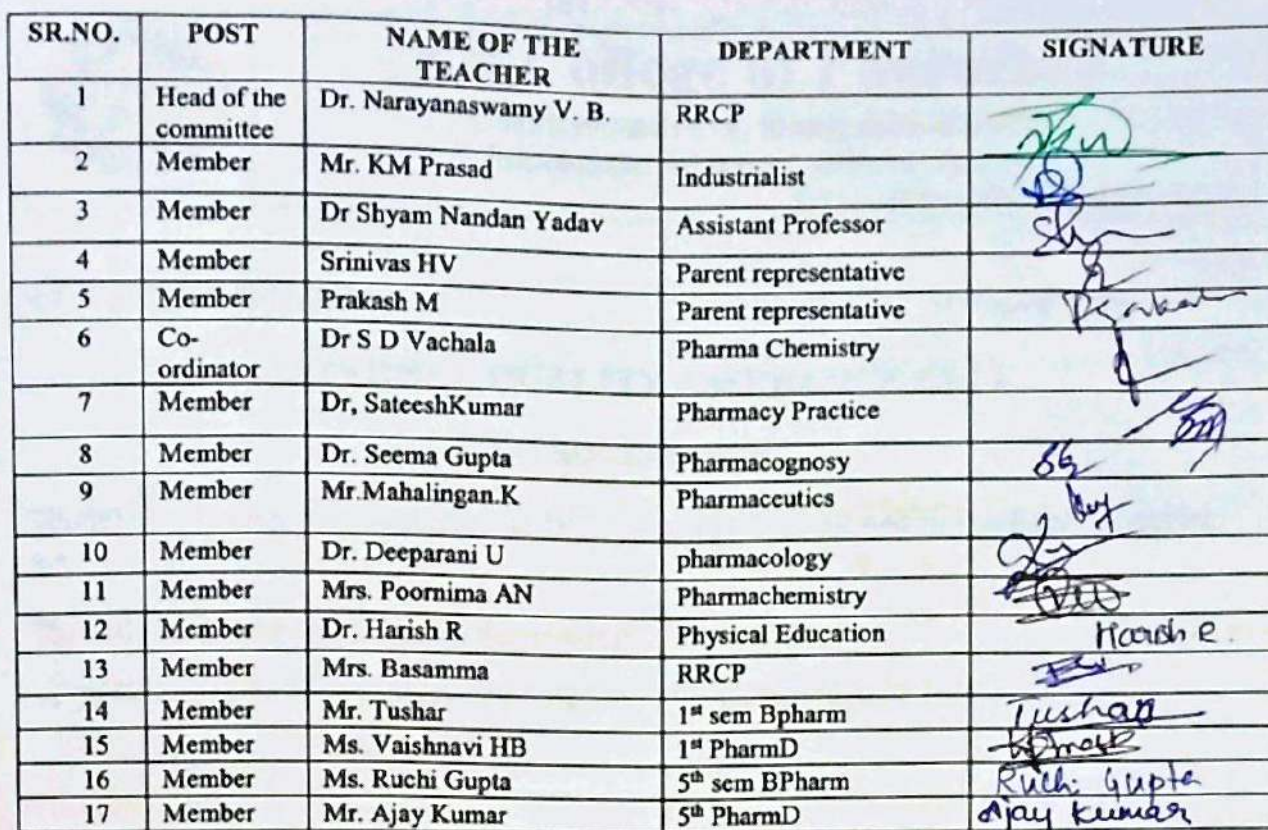 SR.NO. POST NAME OF THE TEACHER DEPARTMENT SIGNATURE
1 Head of the committee Dr. Narayanaswamy V. B. RRCP
2 Member Mr. KM Prasad Industrialist
3 Member Dr Shyam Nandan Yadav Assistant Professor
4 Member Srinivas HV Parent representative
5 Member Prakash M Parent representative
6 Co-ordinator Dr S D Vachala Pharma Chemistry
7 Member Dr, SateeshKumar Pharmacy Practice
8 Member Dr. Seema Gupta Pharmacognosy SG
9 Member Mr.Mahalingan.K Pharmaceutics
10 Member Dr. Deeparani U pharmacology
11 Member Mrs. Poornima AN Pharmachemistry
12 Member Dr. Harish R Physical Education Harish R.
13 Member Mrs. Basamma RRCP
14 Member Mr. Tushar 1st sem Bpharm Tushar
15 Member Ms. Vaishnavi HB 1st PharmD
16 Member Ms. Ruchi Gupta 5th sem BPharm Ruchi Gupta
17 Member Mr. Ajay Kumar 5th PharmD Ajay Kumar